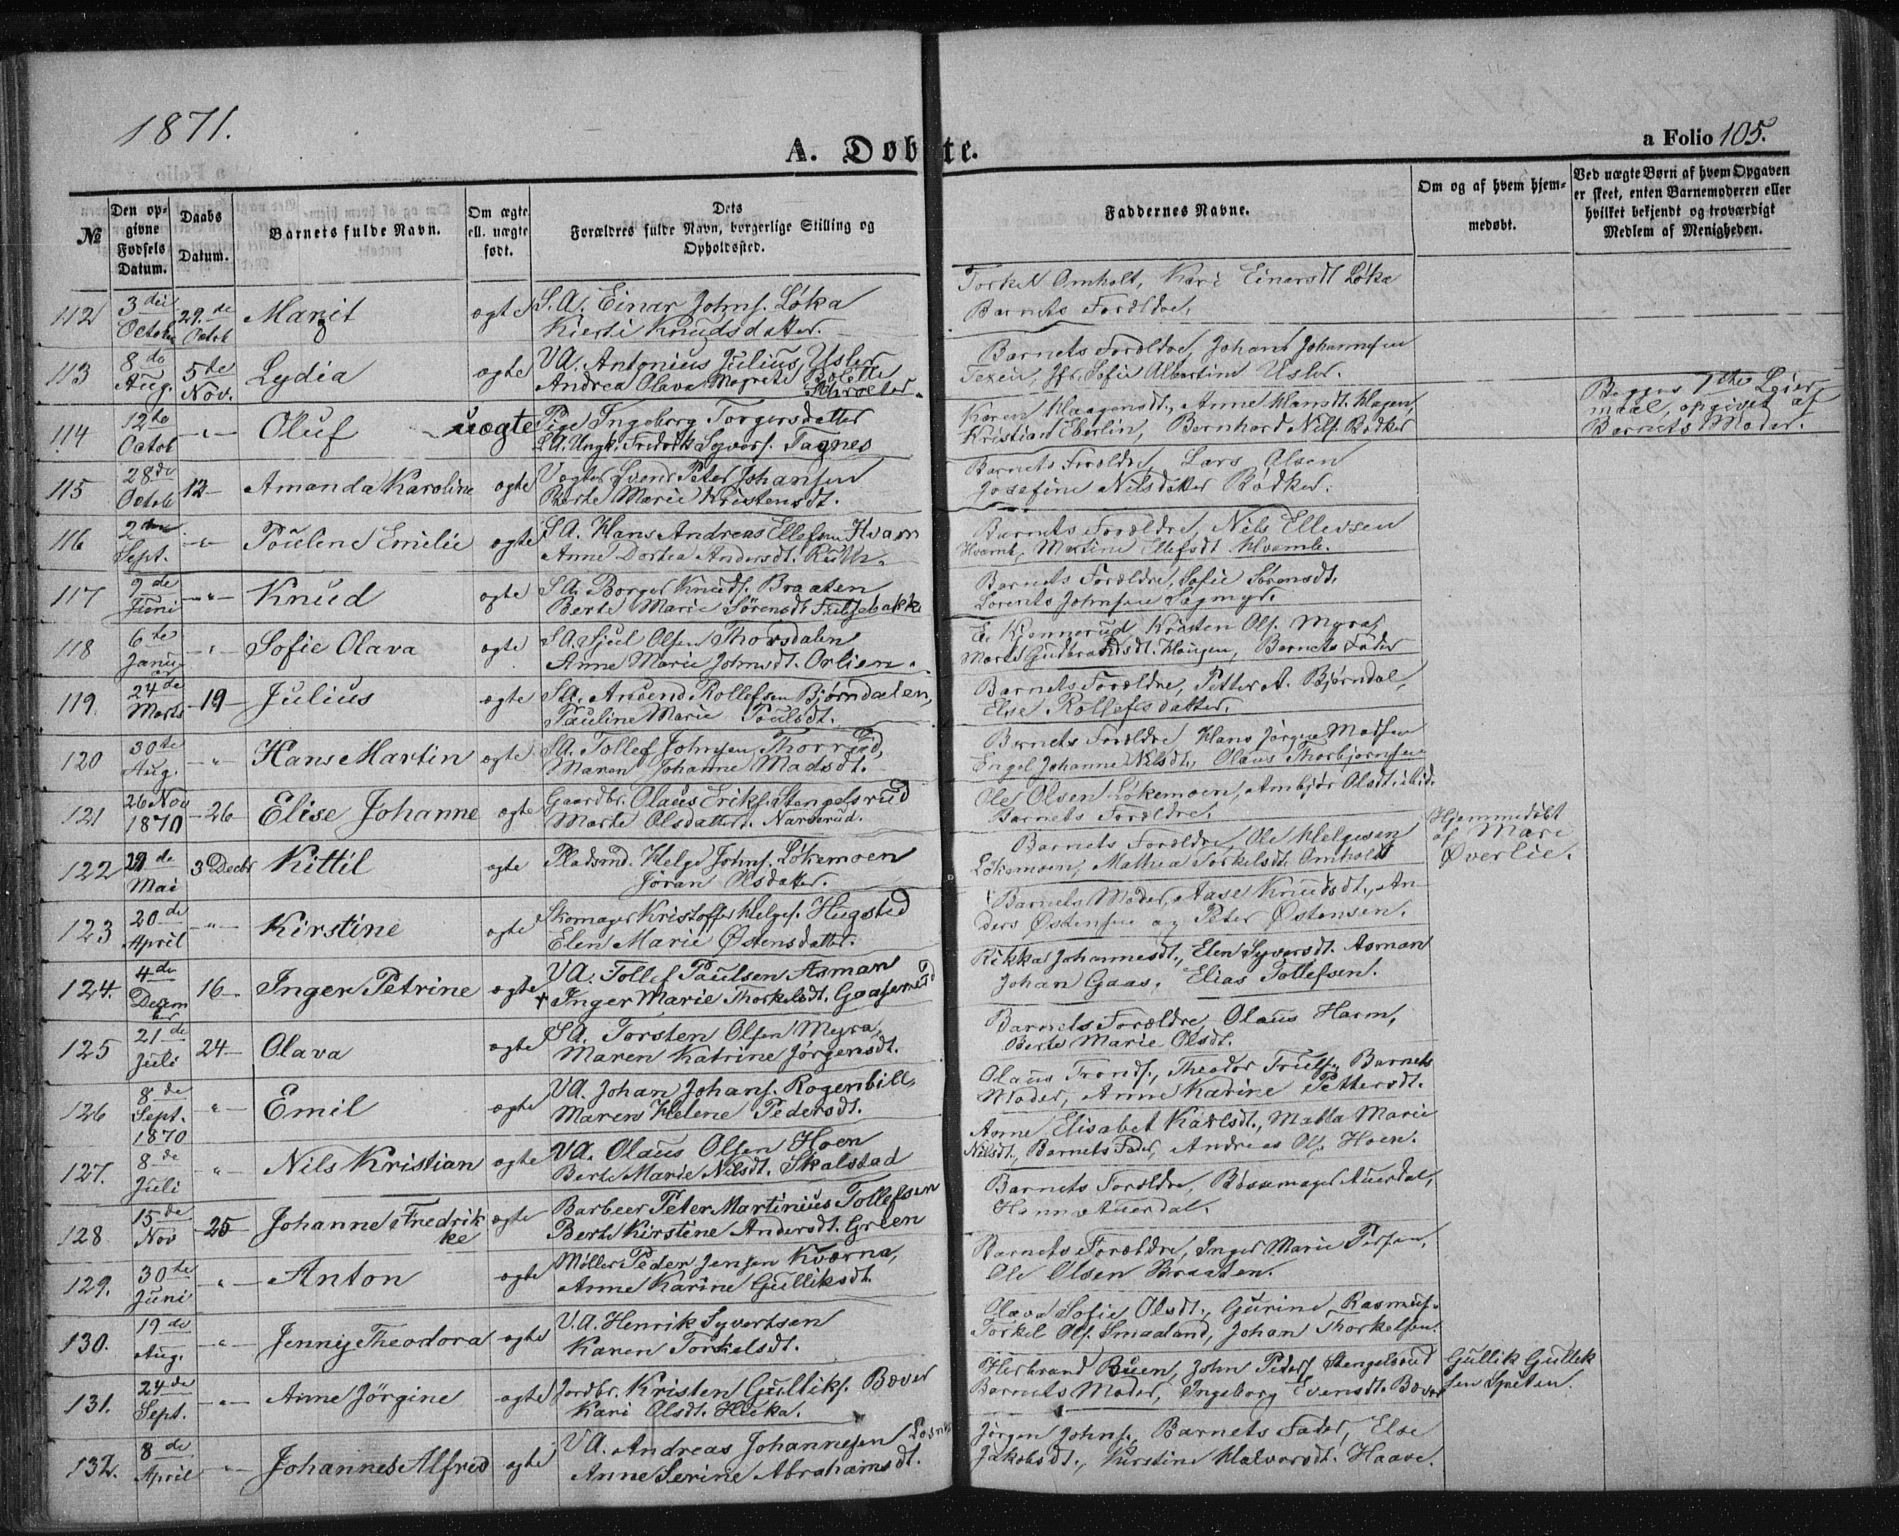 1871.
A. Døbte.
a Folio 105.
№
Den op-
givne
Fødsels
Datum.
Daabs
Datum.
Barnets fulde Navn.
Om ægte
ell. uægte
født.
Dets
Forældres fulde Navn, borgerlige Stilling og
Opholdssted.
Faddernes Navne.
Om og af hvem hjem-
medøbt.
Ved uægte Børn af hvem Opgaven
er skeet, enten Barnemoderen eller
hvilket bekjendt og troværdigt
Medlem af Menigheden.
112 3die Octob 29.de Octob Margit ægte S.A. Einar Johns. Løka
Kjersti Knudsdatter.
Torkel Omholt, Kari Einarsdt Løka
Barnets Forældre.
113 8de Aug. 5te Nov. Lydia ægte V.A. Antonius Julius Usler
Andrea Olava Magrete Bolette Schrøeter.
Barnets Forældre, Johans Johannesen
Texen, Jfr. Sofie Albertine Usler.
114 12te Octob " Oluf uægte Pige Ingeborg Torgersdatter
S.A. Ungk. Fredrik Syvers. Tagnes
Karen Haagensdt., Anne Hansdt. Hagen,
Kristian Eberlin, Bernhard Nils. Bødker
Begges 7de Leier-
maal, opgivet af
Barnets Moder.
115 28de Octob 12 Amanda Karoline ægte Vogter Svend Peter Johansen
Berte Marie Kristensdt.
Barnets Forældre, Lars Olsen
Josefine Nilsdatter Bødker.
116 2den Sept. " Pouline Emilie ægte S.A. Hans Andreas Ellefsen Hvam
Anne Dortea Andersdt. Ruth.
Barnets Forældre, Nils Ellevsen
Hvamb, Martine Ellefsdt Hvamb.
117 9de Juni " Knud ægte S.A. Borger Knuds. Braaten
Berte Marie Sørensdt
Barnets Forældre, Sofie Sørensdt.
Lorents Johnsen Sagmyr.
118 6te Januar " Sofie Olava ægte S.A. Sjul Olsen Thorsdalen
Anne Marie Johnsdt. Orlien.
E. Kjennerud, Kristen Ols. Myra,
Marte Gudbrandsdt. Haugen, Barnets Fader
119. 24de Marts 19 Julius ægte S.A. Anund Rollefsen Bjørndalen,
Pauline Marie Poulsdt.
Barnets Forældre, Petter A. Bjørndal,
Else Rollefsdatter.
120 30te Aug. " Hans Martin ægte S.A. Tollef Johnsen Thorrud,
Maren Johanne Madsdt.
Barnets Forældre, Hans Jørgen Madsen
Engel Johanne Nilsdt., Olaus Thorbjørnsen
121 26 Nov 1870 26 Elise Johanne ægte Gaardbr. Olaus Eriks. Stengelsrud
Marte Olsdatter. Narverud.
Ole Olsen Løkemoen, Ambjør Olsdt. i Lid.
Barnets Forældre.
122 29de Mai 3 Decbr Kittil ægte Pladsmd. Helge Johns. Løkemoen
Jøran Olsdatter.
Barnets Forældre, Ole Helgesen
Løkemoen, Mathea Torkelsdt. Omholt
Hjemmedøbt
af Mari
Øverlie.
123 20de April " Kirstine ægte Skomager Kristoffer Helges. Hugsted
Elen Marie Østensdatter.
Barnets Moder, Aase Knudsdt., An-
ders Østensen og Peter Østensen.
124. 4de Decemb 16 Inger Petrine ægte V.A. Tollef Paulsen Asman
Inger Marie Thorkelsdt. Gaaserud
Rikka Johannesdt., Elen Syversdt. Asman
Johan Gaas, Elias Tollefsen.
125 21de Juli 24 Olava ægte S.A. Torsten Olsen Myra,
Maren Katrine Jørgensdt.
Barnets Forældre, Olaus Harm,
Berte Marie Olsdt.
126 8de Sept. 1870 " Emil ægte V.A. Johan Johans. Rogenbill
Maren Helene Pedersdt.
Olaus Tronds., Theodor Truls., Barnets
Moder, Anne Karine Pettersdt.
127. 8de Juli " Nils Kristian ægte V.A. Olaus Olsen Hoen
Berte Marie Nilsdt. Skalstad
Anne Elisabet Karlsdt., Matta Marie
Nilsdt., Barnets Fader, Andreas Ols. Hoen.
128 15de Nov 25 Johanne Fredrik
ke ægte Barbeer Peter Martinius Tollefsen
Berte Kirstine Andersdt. Green
Barnets Forældre, Bøssemager Auerdal,
Hanna Auerdal.
129. 30te Juni " Anton ægte Møller Peder Jensen Kværna,
Anne Karine Gulliksdt.
Barnets Forældre, Inger Marie Persen,
Ole Olsen Braaten.
130. 19de Aug. " Jenny Theodora ægte V.A. Henrik Syvertsen
Karen Torkelsdt.
Olava Sofie Olsdt., Gurine Rasmus.
Torkel Ols. Smaaland, Johan Thorkelsen.
131. 24de Sept. " Anne Jörgine ægte Jordbr. Kristen Gulliks. Bæver
Kari Olsdt. Huka.
Herbrand Buen, John Peders Stengelsrud
Barnets Moder, Ingeborg Evensdt. Bæver
Gullik Gullik
sen Spiten.
132. 8de April " Johannes Alfred ægte V.A. Andreas Johannesen
Anne Serine Abrahamsdt.
Jørgen Johns., Barnets Fader, Else
Jakobsdt., Kirstine Halvorsdt. Haave.